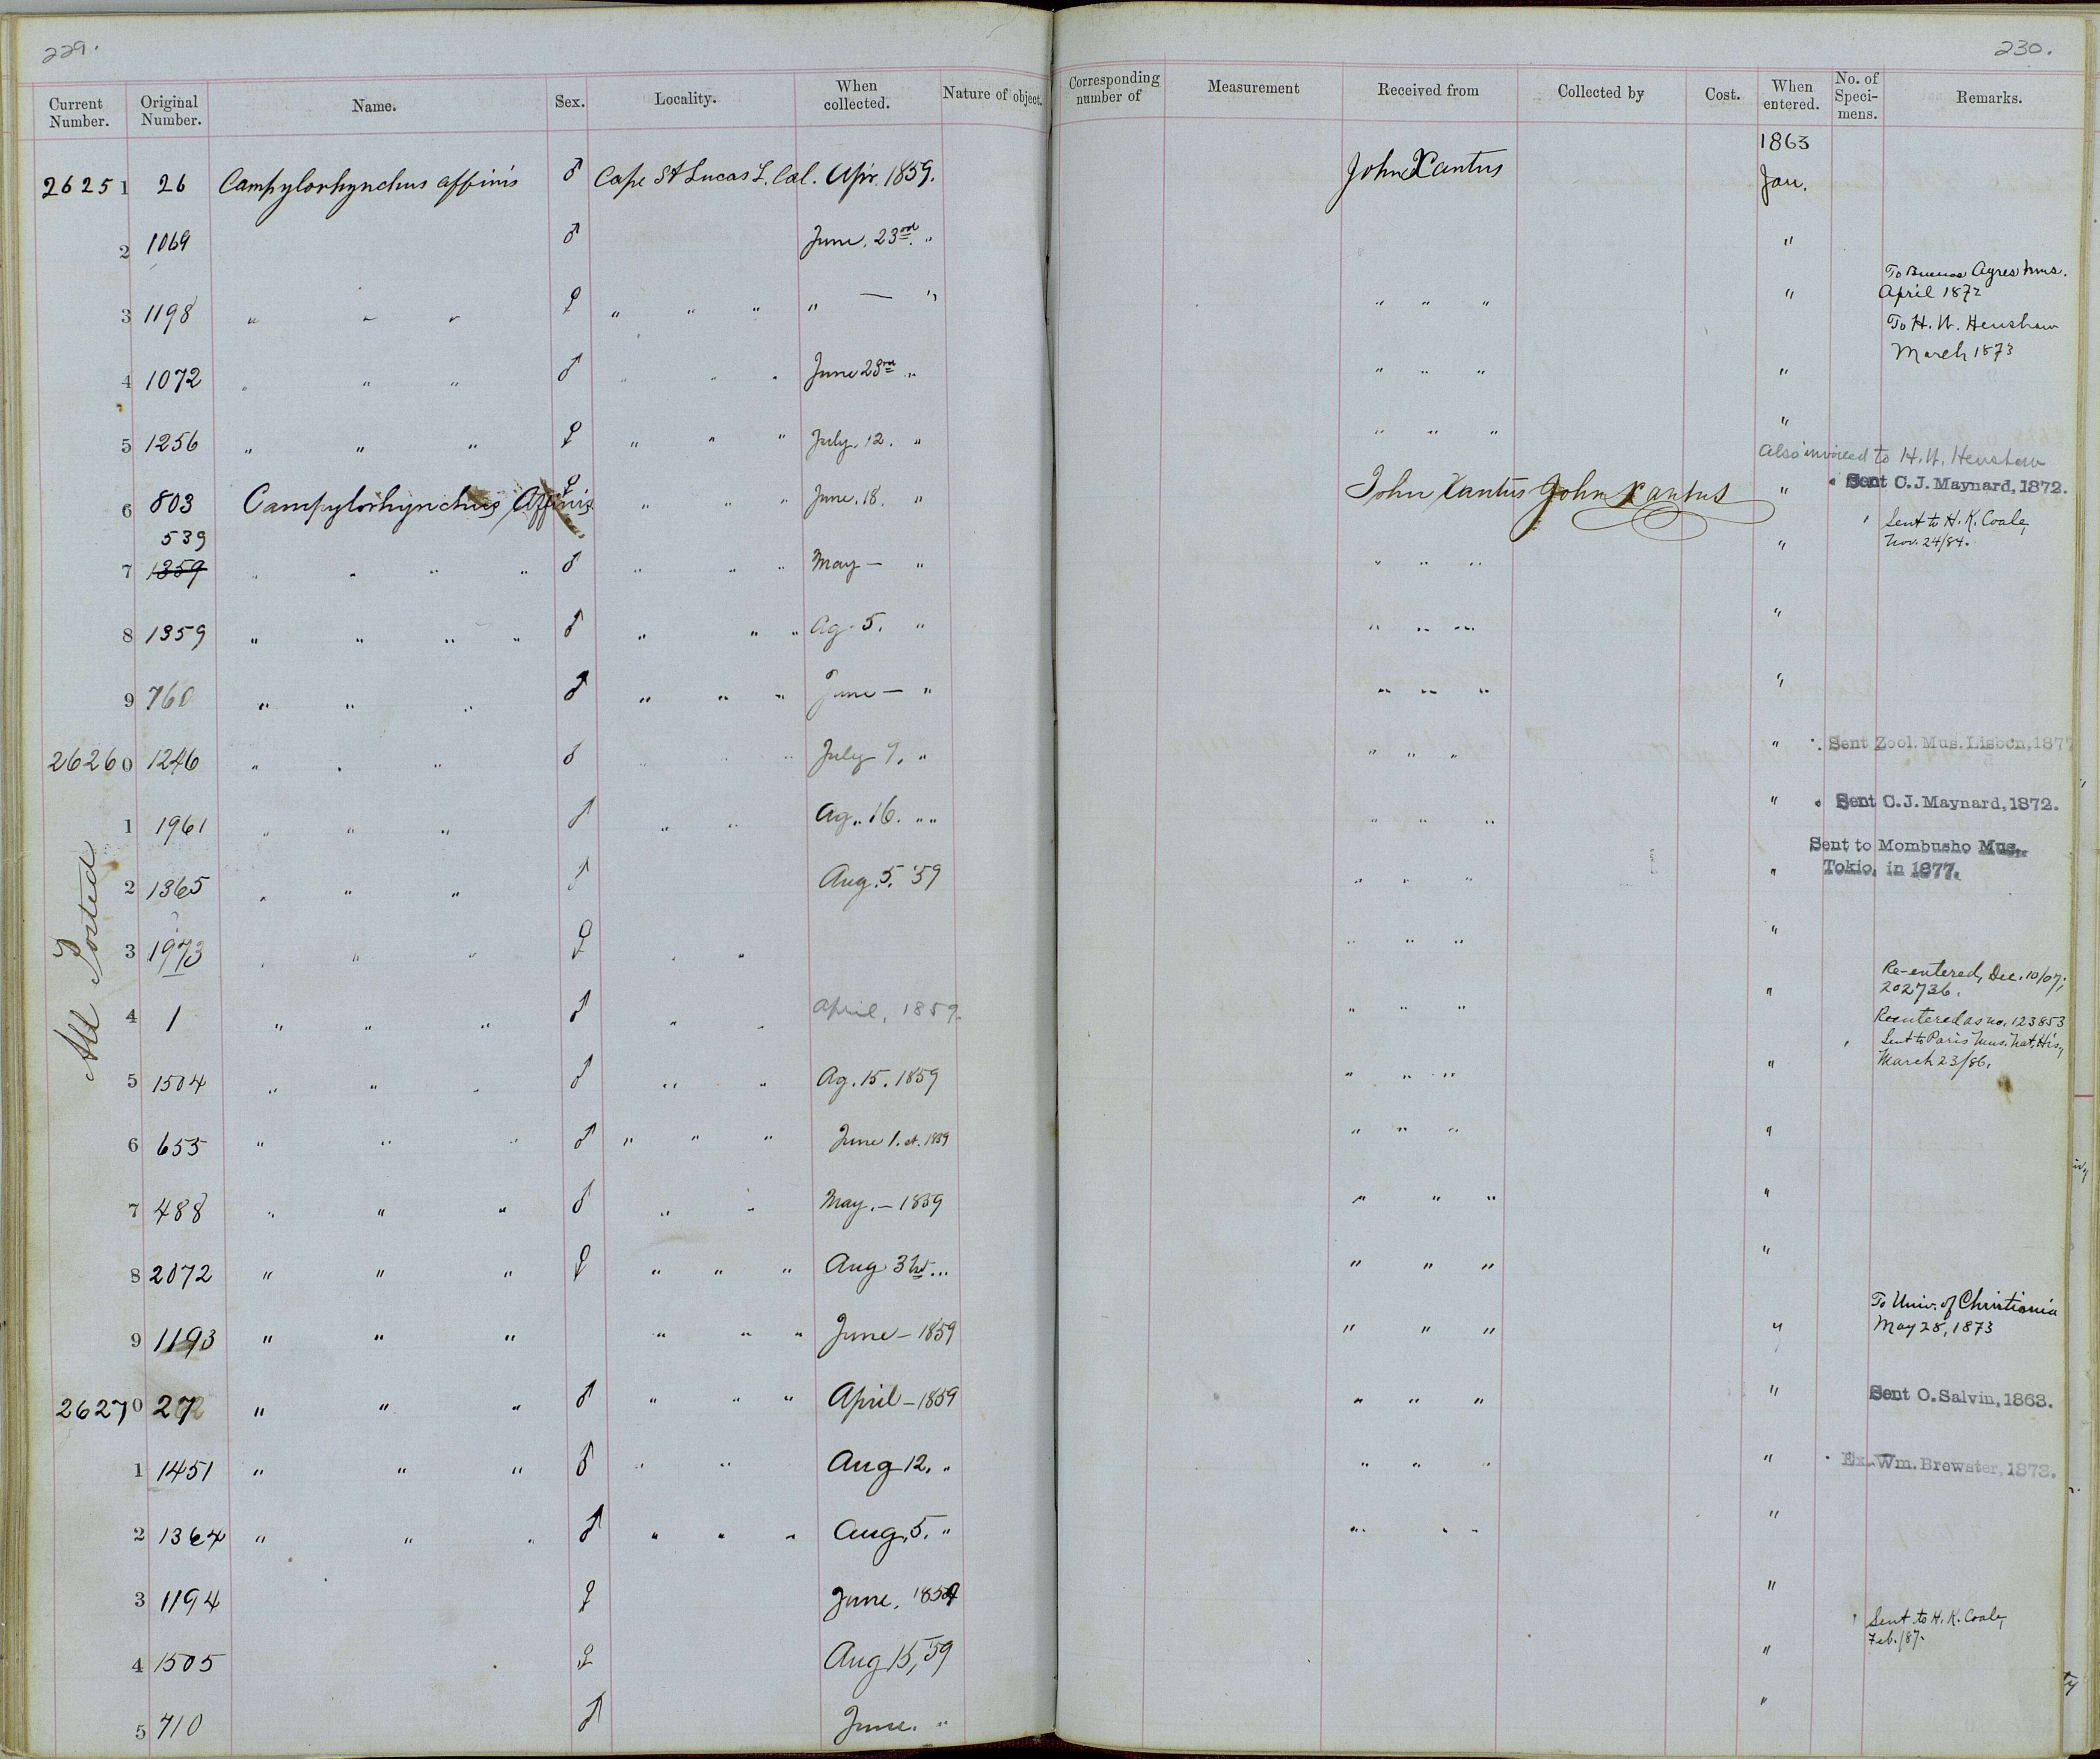 229.
230.
Current Number. Original Number. Name. Sex. Locality. When collected. Nature of object. Corresponding number of Measurement Received from Collected by Cost. When entered. No. of Speci-mens. Remarks.
1863
26251 26 Campylorhynchus affinis ♂ Cape St Lucas L. Cal. Apr. 1859. John Xantus Jan.
2 1069 ♂ June. 23rd. " "
To Buenos Ayres Mus.
April 1872
3 1198 " " " ♀ " " " " — " " " " "
To H. W. Henshaw
March 1873
4 1072 " " " ♂ " " " June 23rd " " " " "
5 1256 " " " ♀ " " " July. 12. " " " " "
Also invoiced to H. W. Henshaw
6 803 Campylorhynchus Affinis ♀ " " " June. 18. " John Xantus John Xantus " Sent C. J. Maynard, 1872.
539
Sent to H. K. Coale,
Nov. 24/84.
7 1359 " " " " ♂ " " " May — " " " " "
8 1359 " " " " ♂ " " " Ag. 5. " " " " "
9 760 " " " ♂ " " " June — " " " " "
26260 1246 " " " ♂ " " " July 9. " " " " " Sent Zool. Mus. Lisbon, 1877
1 1961 " " " ♂ " " Ag. 16. " " " " " " Sent C. J. Maynard, 1872.
Sent to Mombusho Mus.
Tokio, in 1877.
2 1365 " " " ♂ Aug. 5. '59 " " " "
3 1973 " " " ♀ " " " " " "
All Posted
Re-entered, Dec. 10/07;
202736.
4 1 " " " ♂ " " April, 1859. " " " "
Reentered as no. 123853
Sent to Paris Mus. Nat. His.,
March 23/86.
5 1504 " " " ♂ " " Ag. 15. 1859 " " " "
6 655 " " " ♂ " " " June 1. st. 1859 " " " "
7 488 " " " ♂ " " May. — 1859 " " " "
8 2072 " " " ♀ " " " Aug " " " " "
To Univ. of Christiania
May 28, 1873
9 1193 " " " " " " June — 1859 " " " "
26270 27 " " " ♂ " " " April — 1859 " " " " Sent O. Salvin, 1863.
1 1451 " " " ♂ " " Aug 12. " " " " " Ex. Wm. Brewster, 1873.
2 1364 " " " ♂ " " " Aug. 5. " " " " "
3 1194 ♀ June, 1859 "
Sent to H. K. Coale,
Feb. /87.
4 1505 ♀ Aug 15, '59 "
5 710 ♂ June. " "